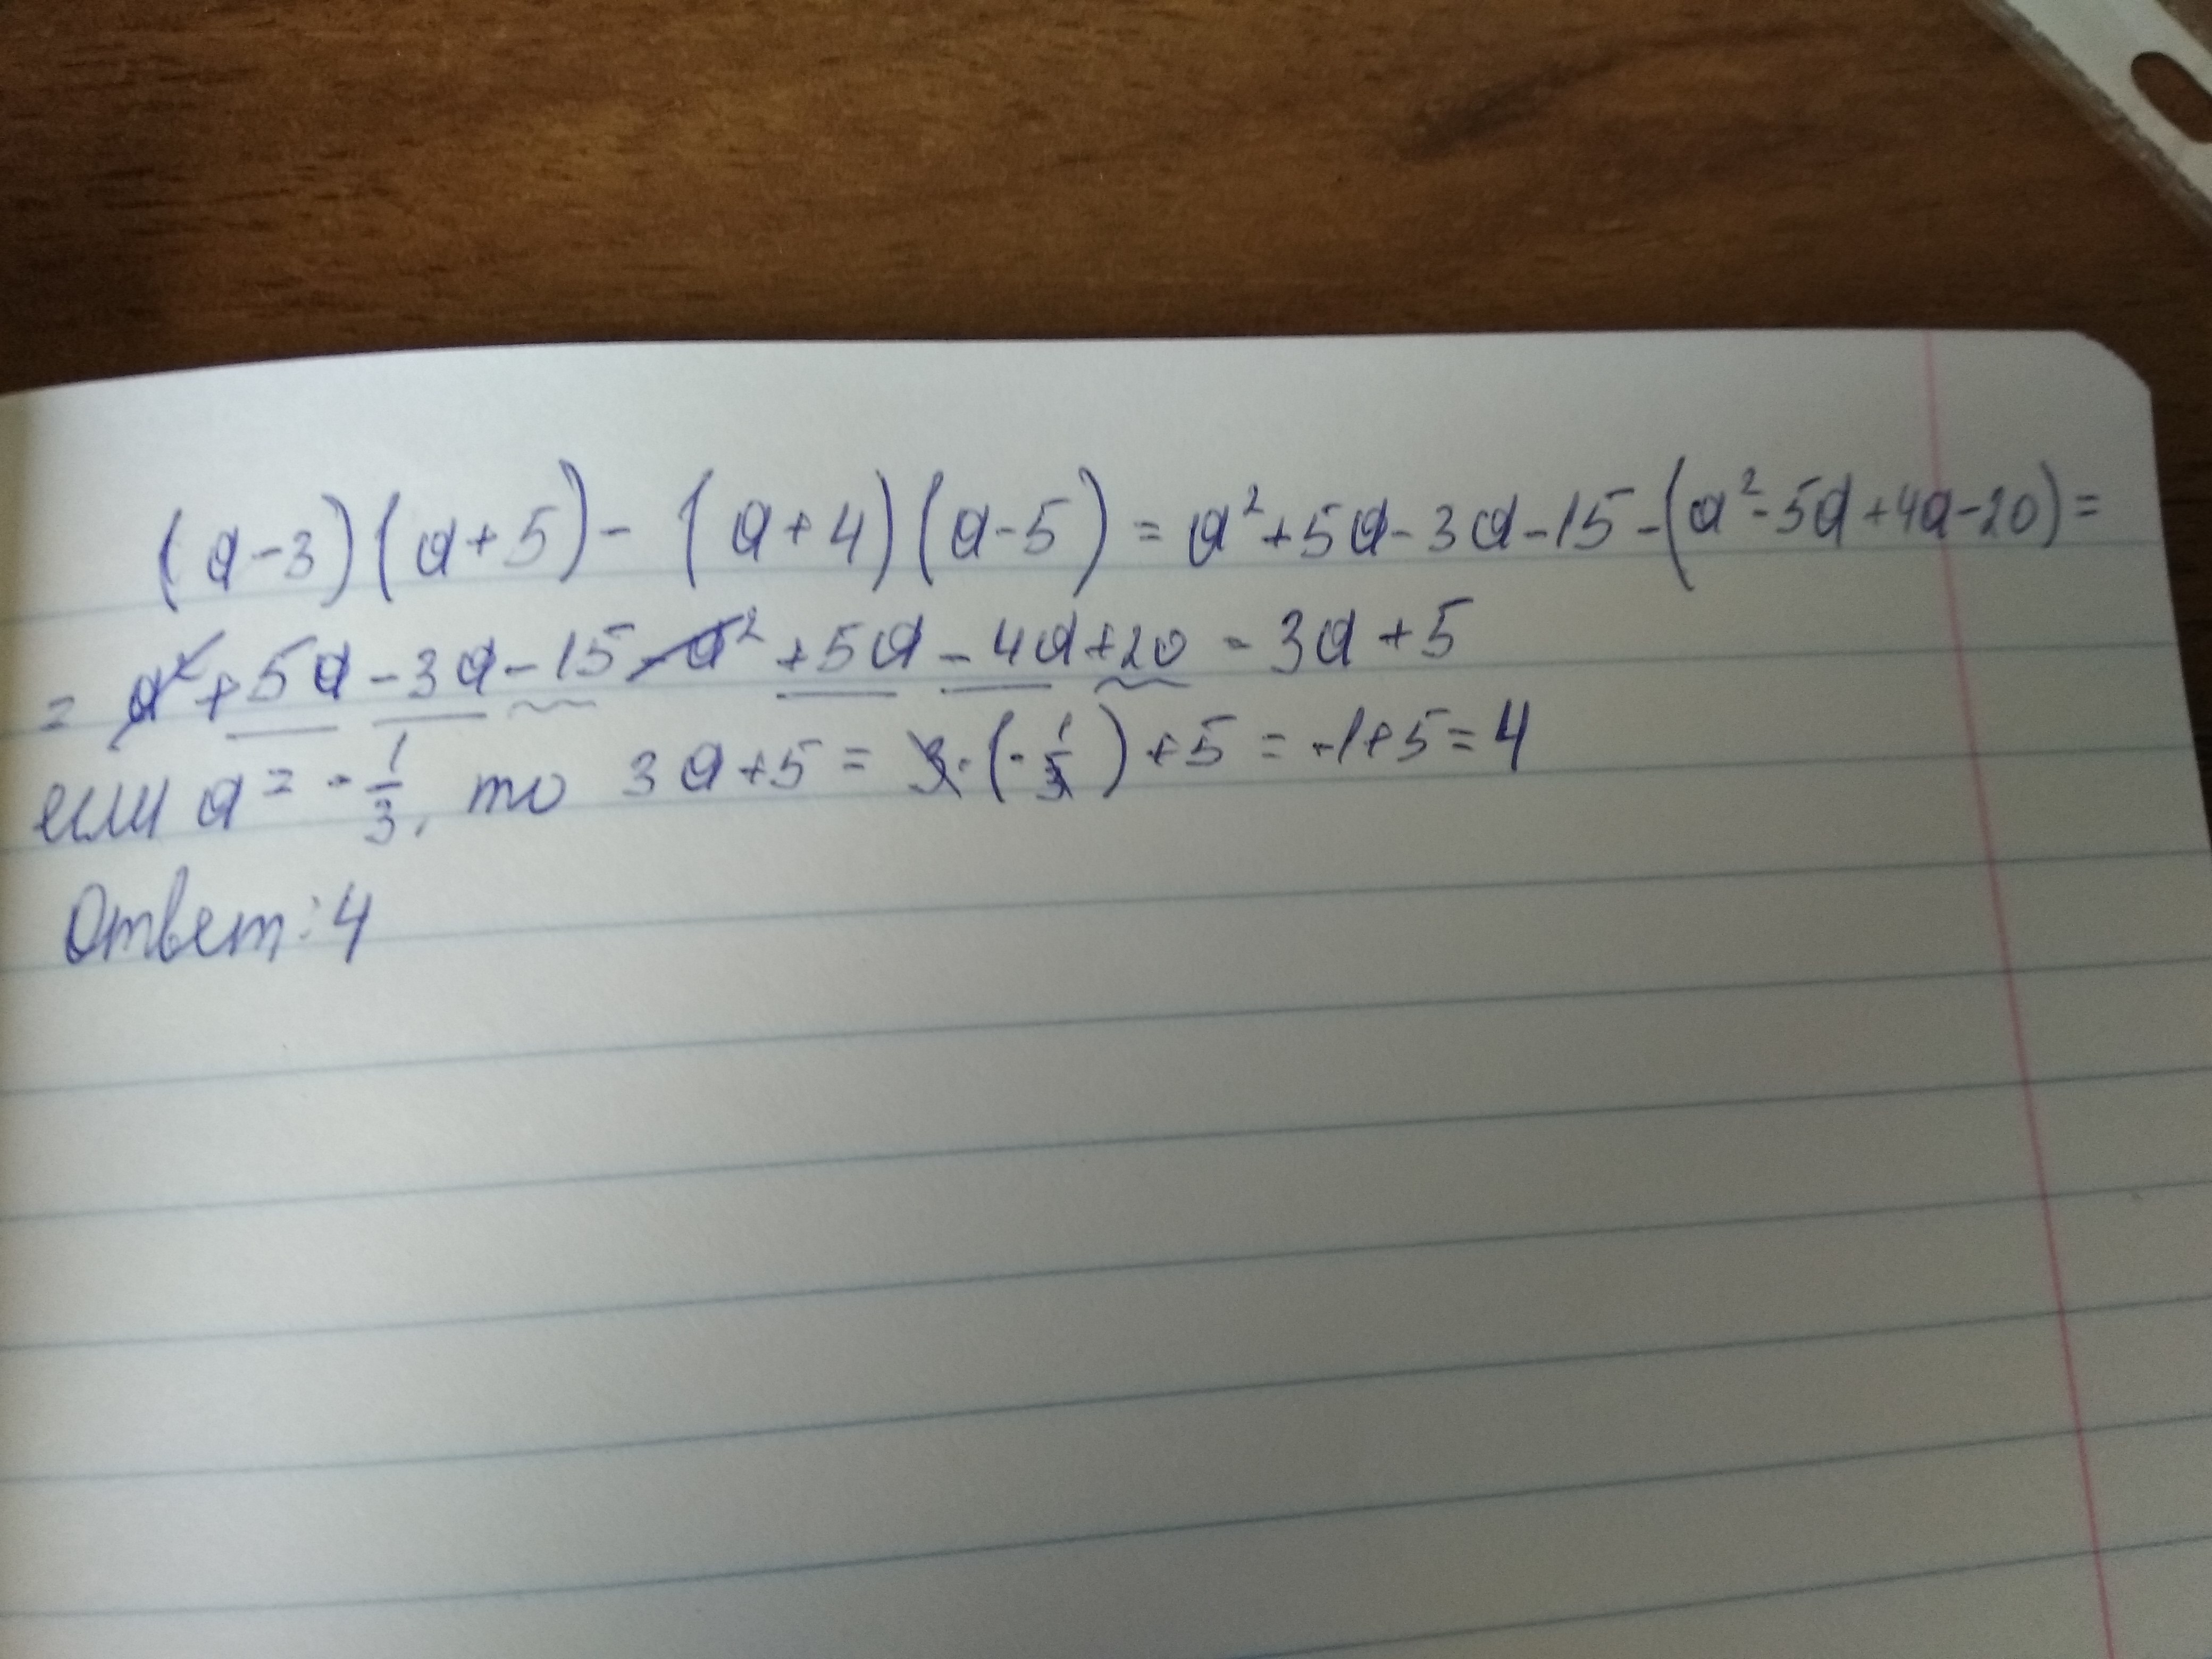 (a-3)(a+5)-(a+4)(a-5)=a²+5a-3a-15-(a²-5a+4a-20)=
=a²+5a-3a-15-a²+5a-4a+20=3a+5
если a=-1/3, то 3a+5=3·(-1/3)+5=-1+5=4
Ответ:4